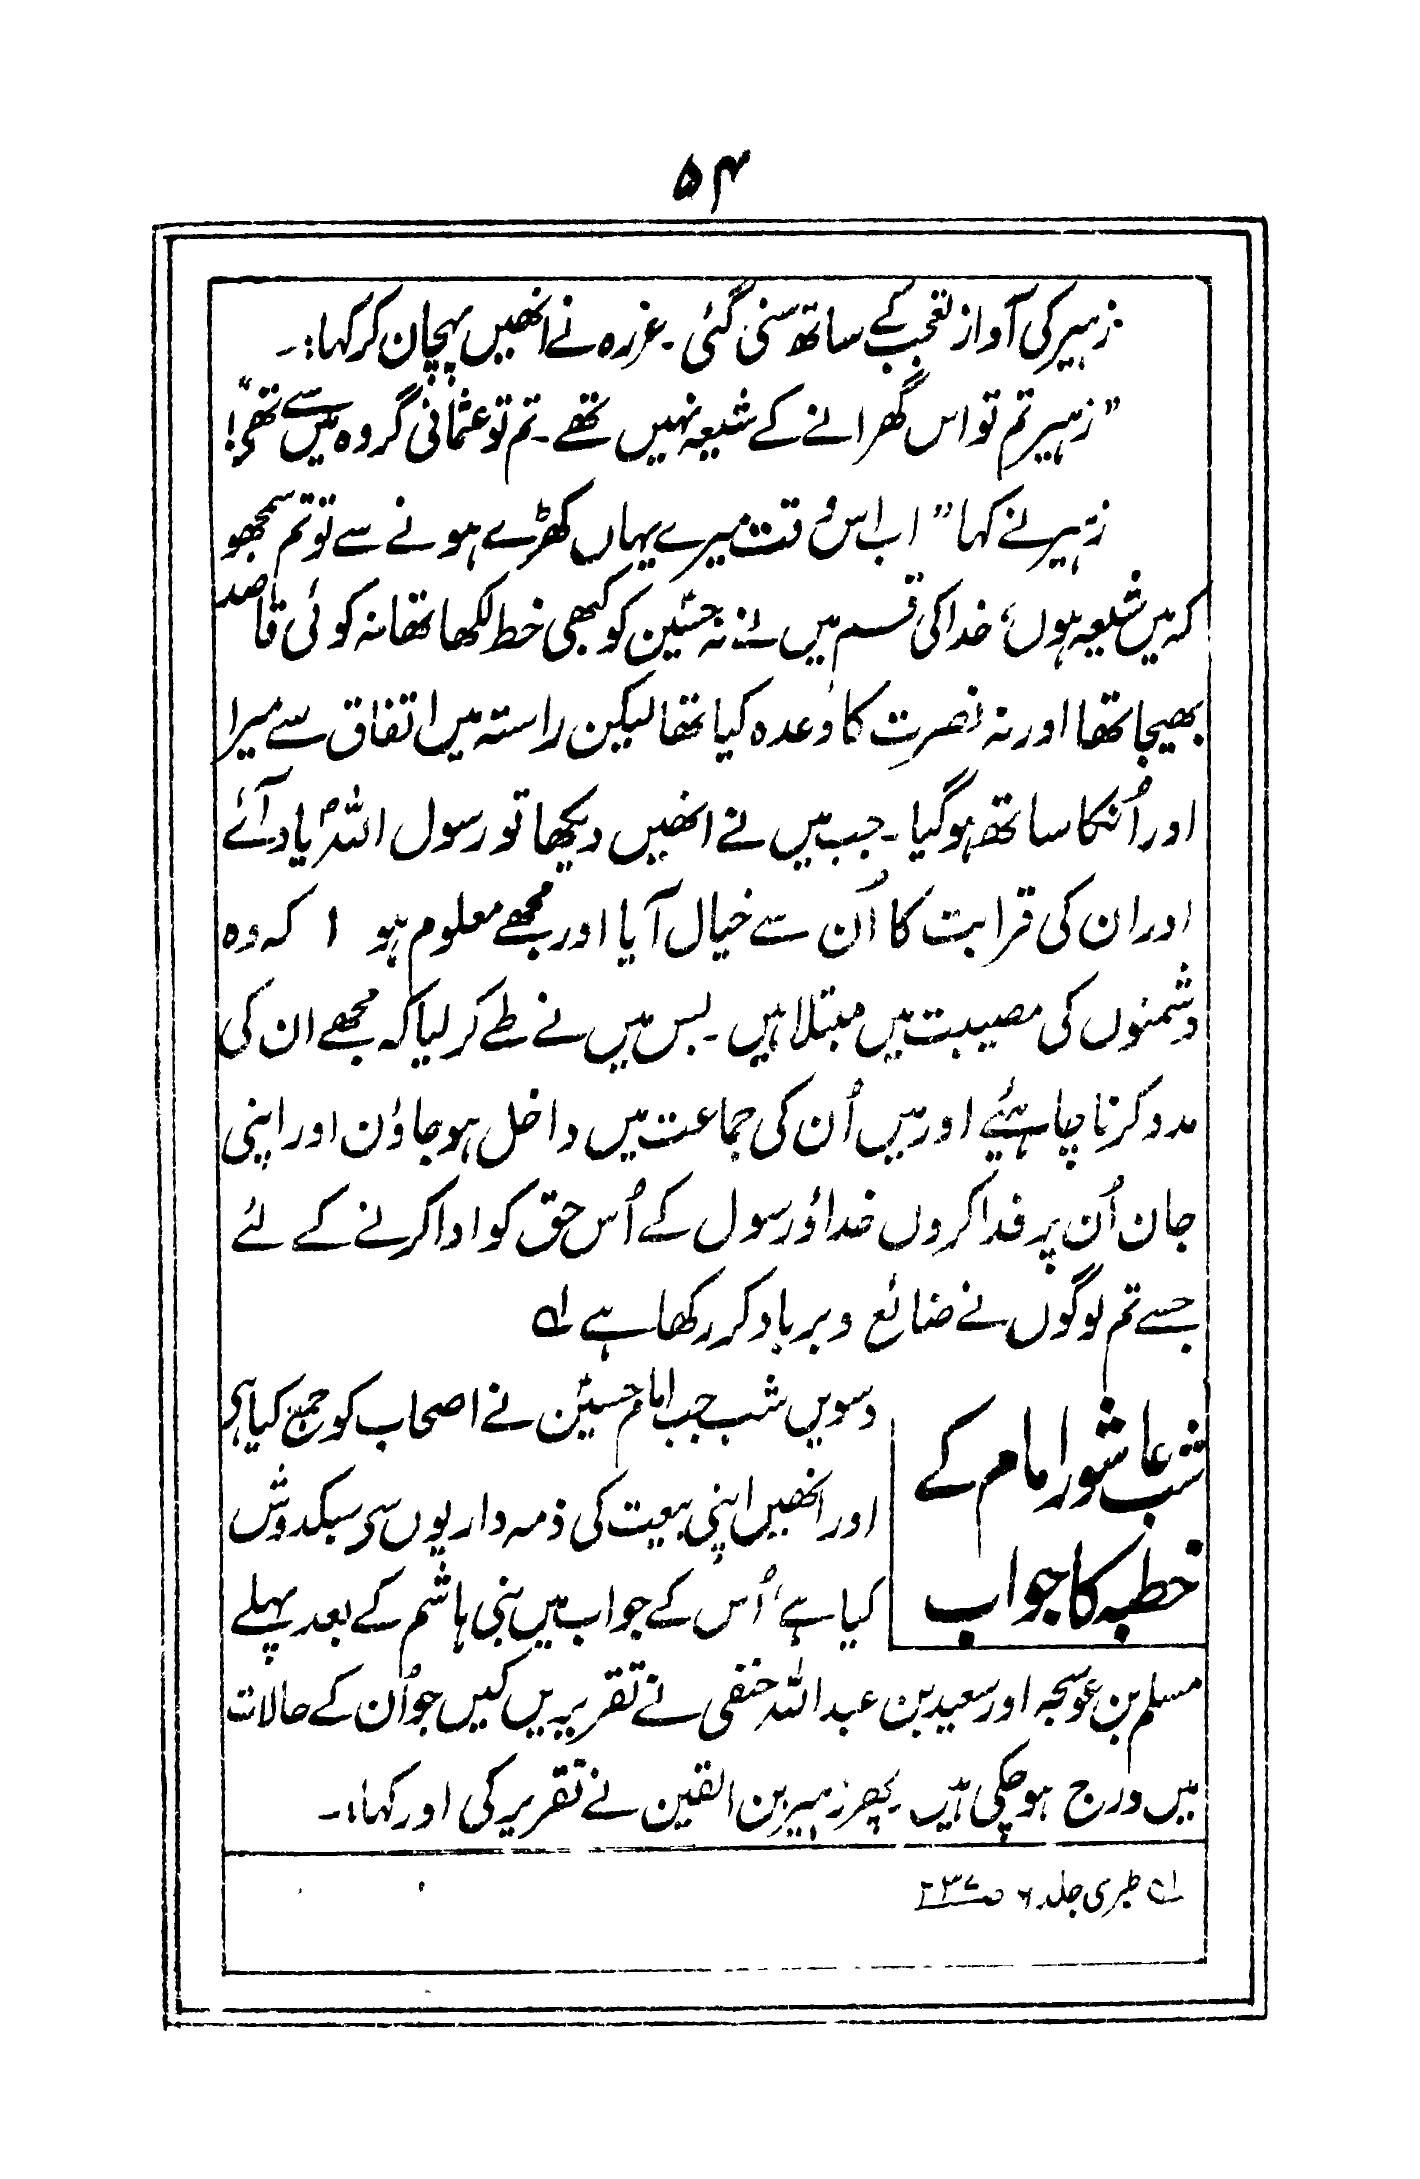 ۵۴
زہیر کی آواز تعجب کے ساتھ سنی گئی۔ عزرہ نے انھیں پہچان کر کہا:۔
”زہیر تم تو اس گھرانے کے شیعہ نہیں تھے۔ تم تو عثمانی گروہ میں سے تھے“!
زہیر نے کہا ”اب اس وقت میرے یہاں کھڑے ہونے سے تو تم سمجھو
کہ میں شیعہ ہوں، خدا کی قسم میں نے نہ حسینؑ کو کبھی خط لکھا تھا نہ کوئی قاصد
بھیجا تھا اور نہ نصرت کا وعدہ کیا تھا لیکن راستہ میں اتفاق سے میرا
اور اُنکا ساتھ ہوگیا۔ جب میں نے انھیں دیکھا تو رسول اللہؐ یاد آئے
اور ان کی قرابت کا اُن سے خیال آیا اور مجھے معلوم ہو ا کہ وہ
دشمنوں کی مصیبت میں مبتلا ہیں۔ بس میں نے طے کر لیا کہ مجھے ان کی
مدد کرنا چاہئیے اور میں اُن کی جماعت میں داخل ہو جاؤں اور اپنی
جان اُن پر فدا کروں خدا و رسول کے اُس حق کو ادا کرنے کے لئے
جسے تم لوگوں نے ضائع و برباد کر رکھا ہے ۱؎
شب عاشور امام کے
خطبہ کا جواب
دسویں شب جب امام حسینؑ نے اصحاب کو جمع کیا ہی
اور انھیں اپنی بیعت کی ذمہ داریوں سی سبکدوش
کیا ہے، اُس کے جواب میں بنی ہاشم کے بعد پہلے
مسلم بن عوسجہ اور سعید بن عبداللہ حنفی نے تقریریں کیں جو اُن کے حالات
میں درج ہو چکی ہیں۔ پھر زہیر بن القین نے تقریر کی اور کہا:۔
۱؎ طبری جلد ۶ ص۲۳۷